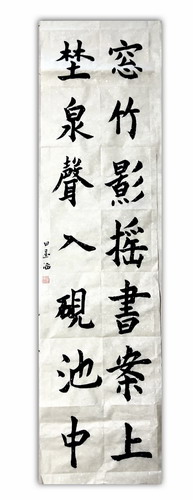 窓竹影摇書案上
埜泉聲入硯池中